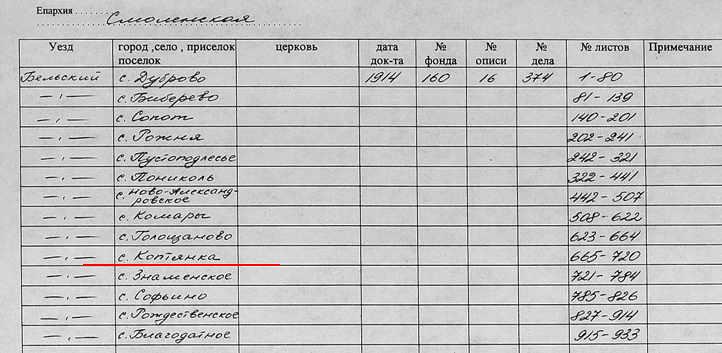 Епархия Смоленская
Уезд город ,село , приселок поселок церковь дата док-та № фонда № описи № дела № листов Примечание
Бельский с. Дуброво 1914 160 16 374 1-80
—„— с. Биберево 81-139
—„— с. Сопот 140-201
—„— с. Рожня 202-241
—„— с. Пустоподлесье 242-321
—„— с. Пониколь 322-441
—„— с. Ново-Александ-
ровское 442-507
—„— с. Комары 508-622
—„— с. Голощаново 623-664
—„— с. Коптянка 665-720
—„— с. Знаменское 721-784
—„— с. Софьино 785-826
—„— с. Рождественское 827-914
—„— с. Благодатное 915-933